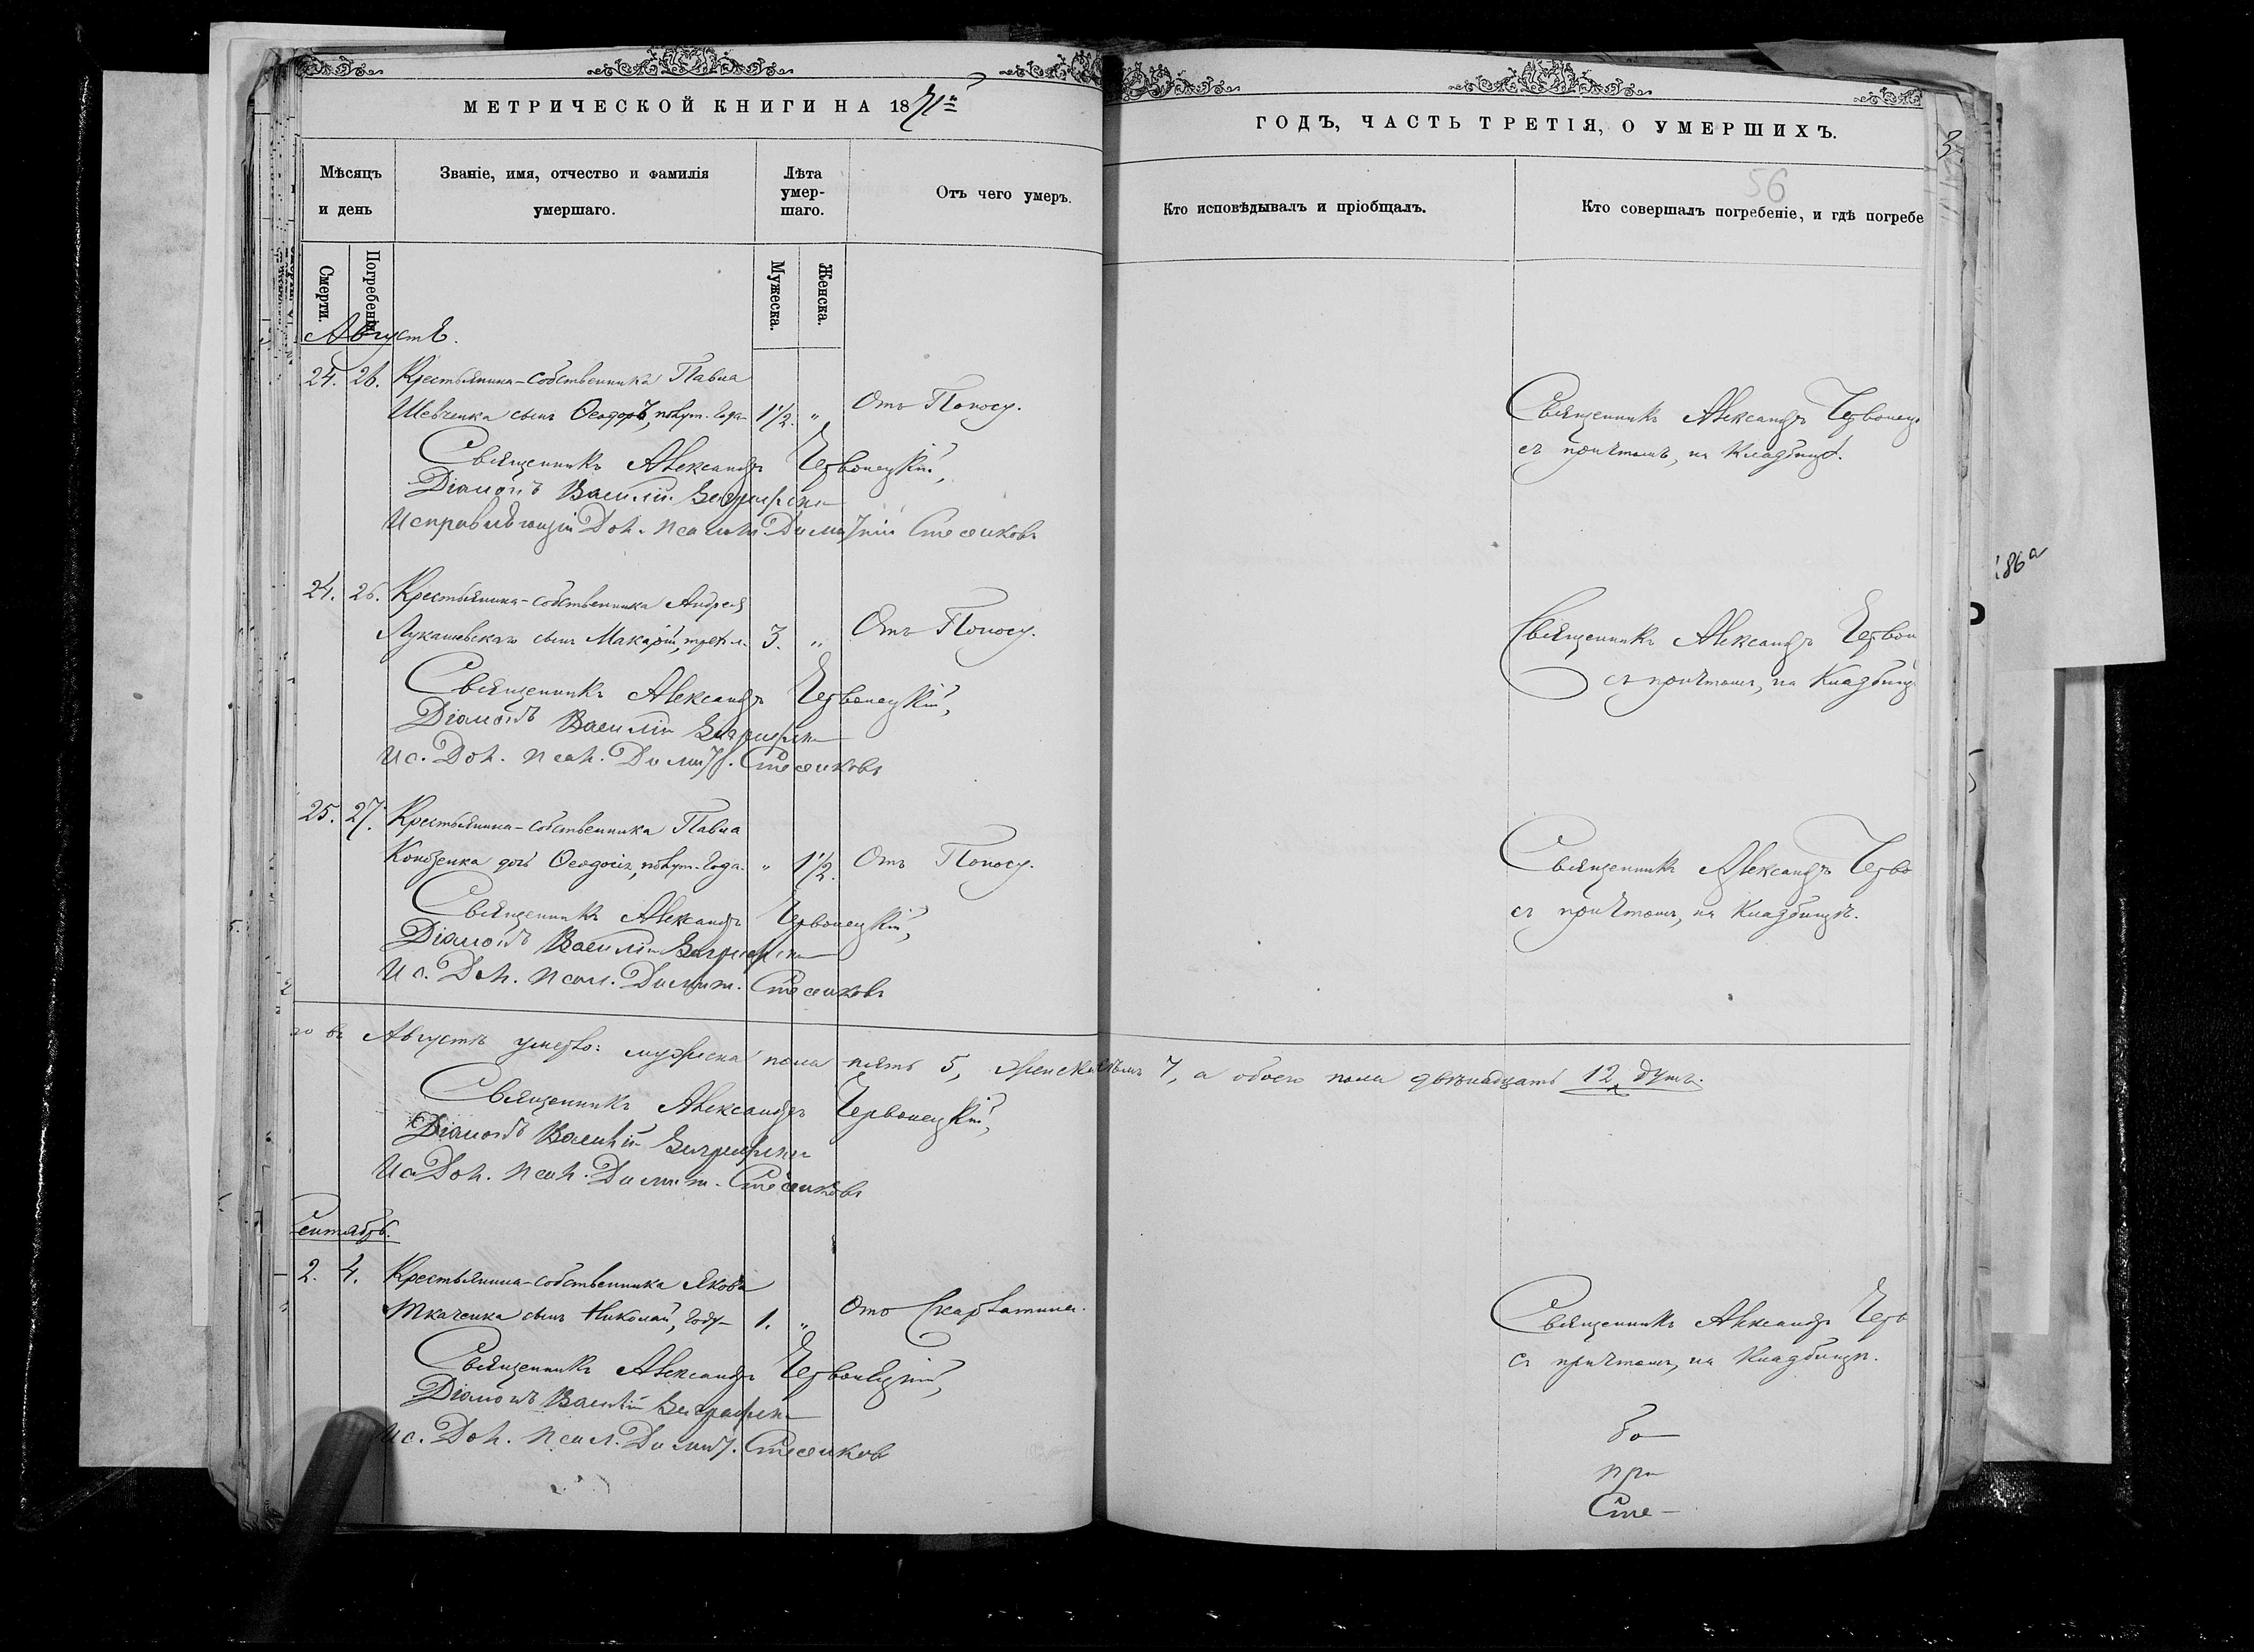 МЕТРИЧЕСКОЙ КНИГИ НА 1871й
ГОДЪ, ЧАСТЬ ТРЕТІЯ, О УМЕРШИХЪ.
3
56
Мѣсяцъ и день
Званіе, имя, отчество и фамилія умершаго.
Лѣта умер-шаго.
Отъ чего умеръ.
Кто исповѣдывалъ и пріобщалъ.
Кто совершалъ погребеніе, и гдѣ погребе
Смерти.
Погребенія
Мужеска.
Женска.
Августъ.
24. 26. Крестьянина-собственника Павла
Шевченка сынъ Ѳеодоръ, полут. года 1½. „ Отъ Поносу.
Священникъ Александръ Червонецкій,
Діаконъ Василій
Исправляющій Дол. Псалом. Димитрій
Священникъ Александръ Червонец
съ причтомъ, на Кладбищѣ.
24. 26. Крестьянина-собственника Андрея
Лукашевскаго сынъ Макарій, трех л. 3. „ Отъ Поносу.
Священникъ Александръ Червонецкій,
Діаконъ Василій
Ис. Дол. Псал. Димитр.
Священникъ Александръ Червон
съ причтомъ, на Кладбищ
186а
25. 27. Крестьянина-собственника Павла
дочь Ѳеодосія, полут. года. „ 1½. Отъ Поносу.
Священникъ Александръ Червонецкій,
Діаконъ Василій
Ис. Дол. Псал. Димит.
Священникъ Александръ Черво
съ причтомъ, на Кладбищѣ.
го въ Августѣ умерло: мужеска пола пять 5, женска семь 7, а обоего пола двѣнадцать 12 душъ.
Священникъ Александръ Червонецкій,
Діаконъ Василій
Ис. Дол. Псал. Димит.
Сентябрь.
2. 4. Крестьянина-собственника Якова
Ткаченка сынъ Николай, году 1. „ Отъ Скарлатины.
Священникъ Александръ Червонецкій,
Діаконъ Василій
Ис. Дол. Псал. Димит.
Священникъ Александръ Черв
съ причтомъ, на Кладбищѣ.
при
Сте-